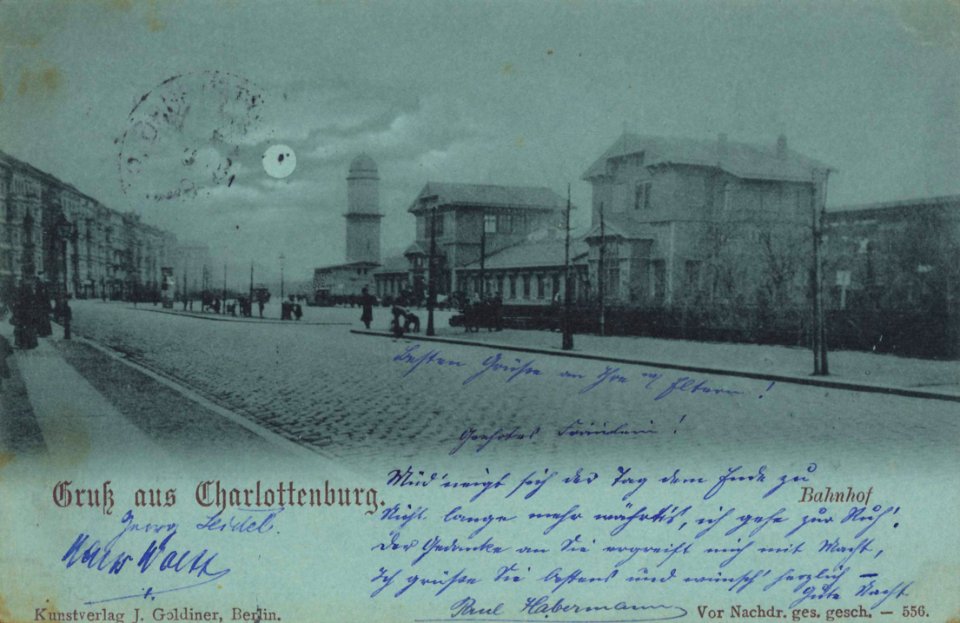 besten Grüße an Ihre w. Eltern!
Geehrtes Fräulein!
Müd' neigt sich der Tag dem Ende zu
Nicht lange mehr währt's, ich gehe zur Ruh'!
Der Gedanke an Sie ergreift mich mit Macht,
Ich grüße Sie bestens und wünsch' herzlich –
Gute Nacht
Gruß aus Charlottenburg.
Bahnhof
Georg Seidel.
Paul Habermann
Kunstverlag J. Goldiner, Berlin.
Vor Nachdr. ges. gesch. — 556.